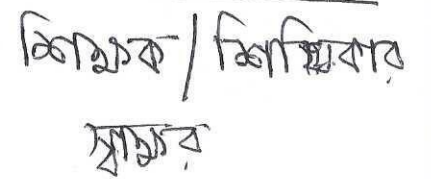 শিক্ষক / শিক্ষিকার
স্বাক্ষর